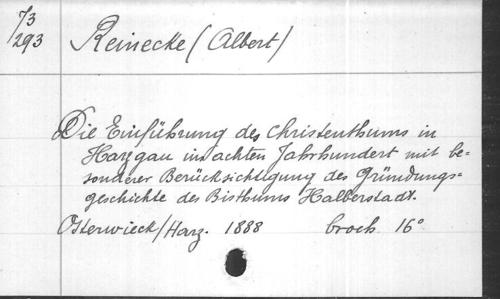 73
293
Reinecke (Albert)
Die Einführung des Christenthums in
Harzgau im achten Jahrhundert mit be=
sonderer Berücksichtigung des Gründungs=
geschichte des Bisthums Halberstadt.
Osterwieck/Harz. 1888 broch 16°